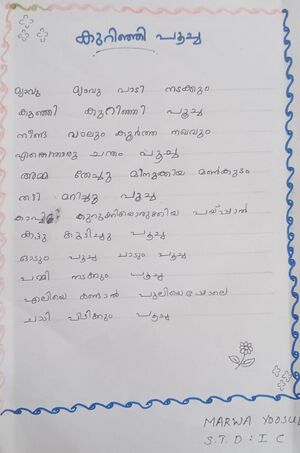 കുറിഞ്ഞി പൂച്ച
മ്യാവൂ മ്യാവൂ പാടി നടക്കും
കുഞ്ഞി കുറിഞ്ഞി പൂച്ച
നീണ്ട വാലും കൂർത്ത നഖവും
എന്തൊരു ചന്തം പൂച്ച
അമ്മ തേച്ചു മിനുക്കിയ മൺകുടം
തട്ടി മറിച്ചു പൂച്ച
കാച്ചി കുറുക്കിയൊരുക്കിയ പയ്പ്പാൽ
കട്ടു കുടിച്ചു പൂച്ച
ഓടും പൂച്ച ചാടും പൂച്ച
പമ്മി നടക്കും പൂച്ച
എലിയെ കണ്ടാൽ പുലിയെപോലെ
ചാടി പിടിക്കും പൂച്ച
MARWA YOOSU
S.T.D : I C